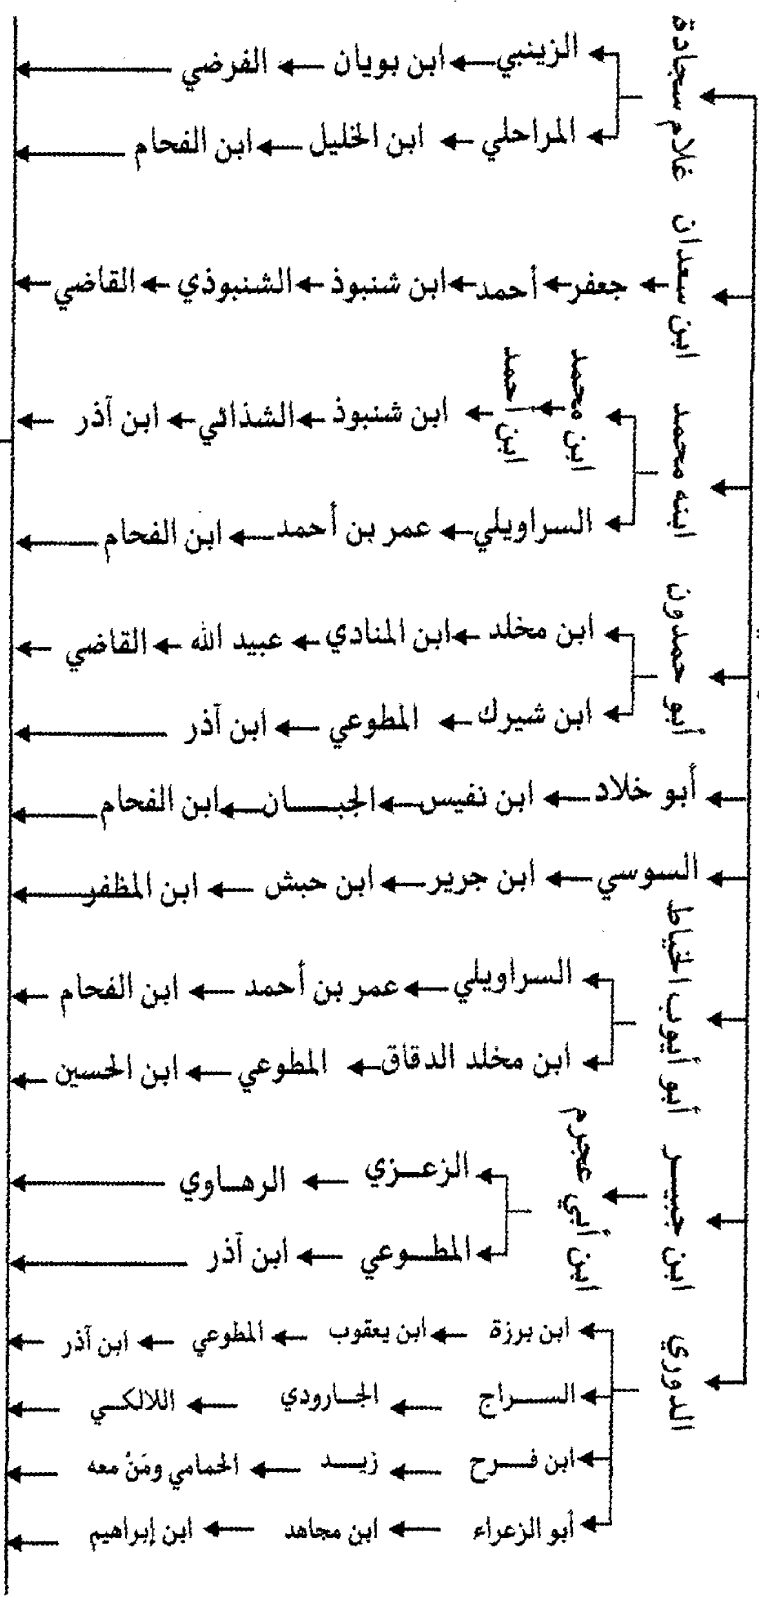 غلام سجادة
الزينبي ابن بويان الفرضي
المراحلي ابن الخليل ابن الفحام
ابن سعدان
جعفر أحمد ابن شنبوذ الشنبوذي القاضي
ابنه محمد
ابن محمد ابن أحمد ابن شنبوذ الشذائي ابن آذر
السراويلي عمر بن أحمد ابن الفحام
أبو حمدون
ابن مخلد ابن المنادي عبيد الله القاضي
ابن شيرك المطوعي ابن آذر
أبو خلاد ابن نفيس الجبان ابن الفحام
السوسي ابن جرير ابن حبش ابن المظفر
أبو أيوب الخياط
السراويلي عمر بن أحمد ابن الفحام
ابن مخلد الدقاق المطوعي ابن الحسين
ابن جبير
ابن أبي عجرم
الزعزي الرهاوي
المطوعي ابن آذر
الدوري
ابن برزة ابن يعقوب المطوعي ابن آذر
السراج الجارودي اللالكي
ابن فرح زيد الحمامي ومَنْ معه
أبو الزعراء ابن مجاهد ابن إبراهيم